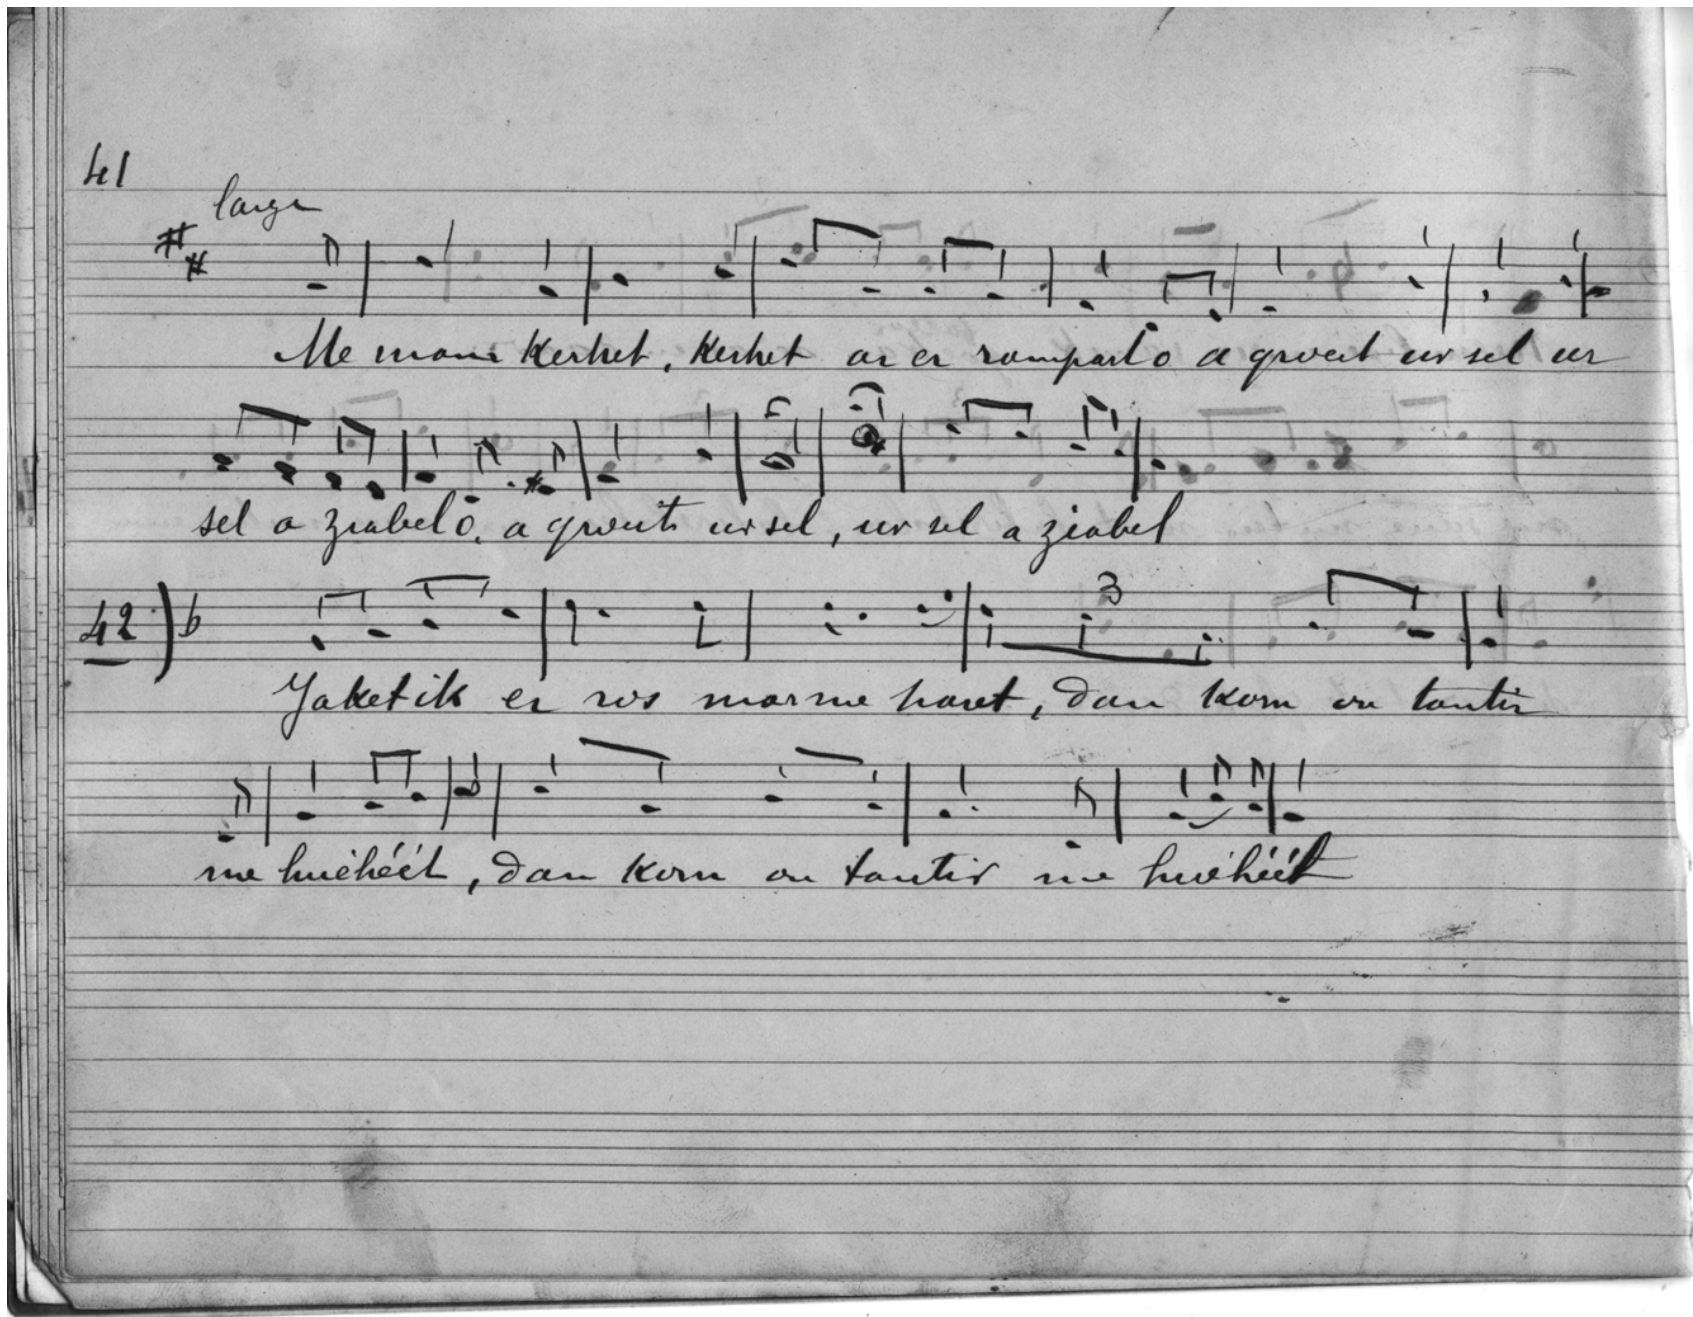 41
large
Me mam Kerhet, Kerhet ar er rampart o a groeit ur sel ur
sel a ziabel o, a groeit ur sel, ur sel a ziabel
42) b
3
Jaketik er ros mar me haret, dan korn an tantir
me huéhéét, dan korn an tantir me huéhéét